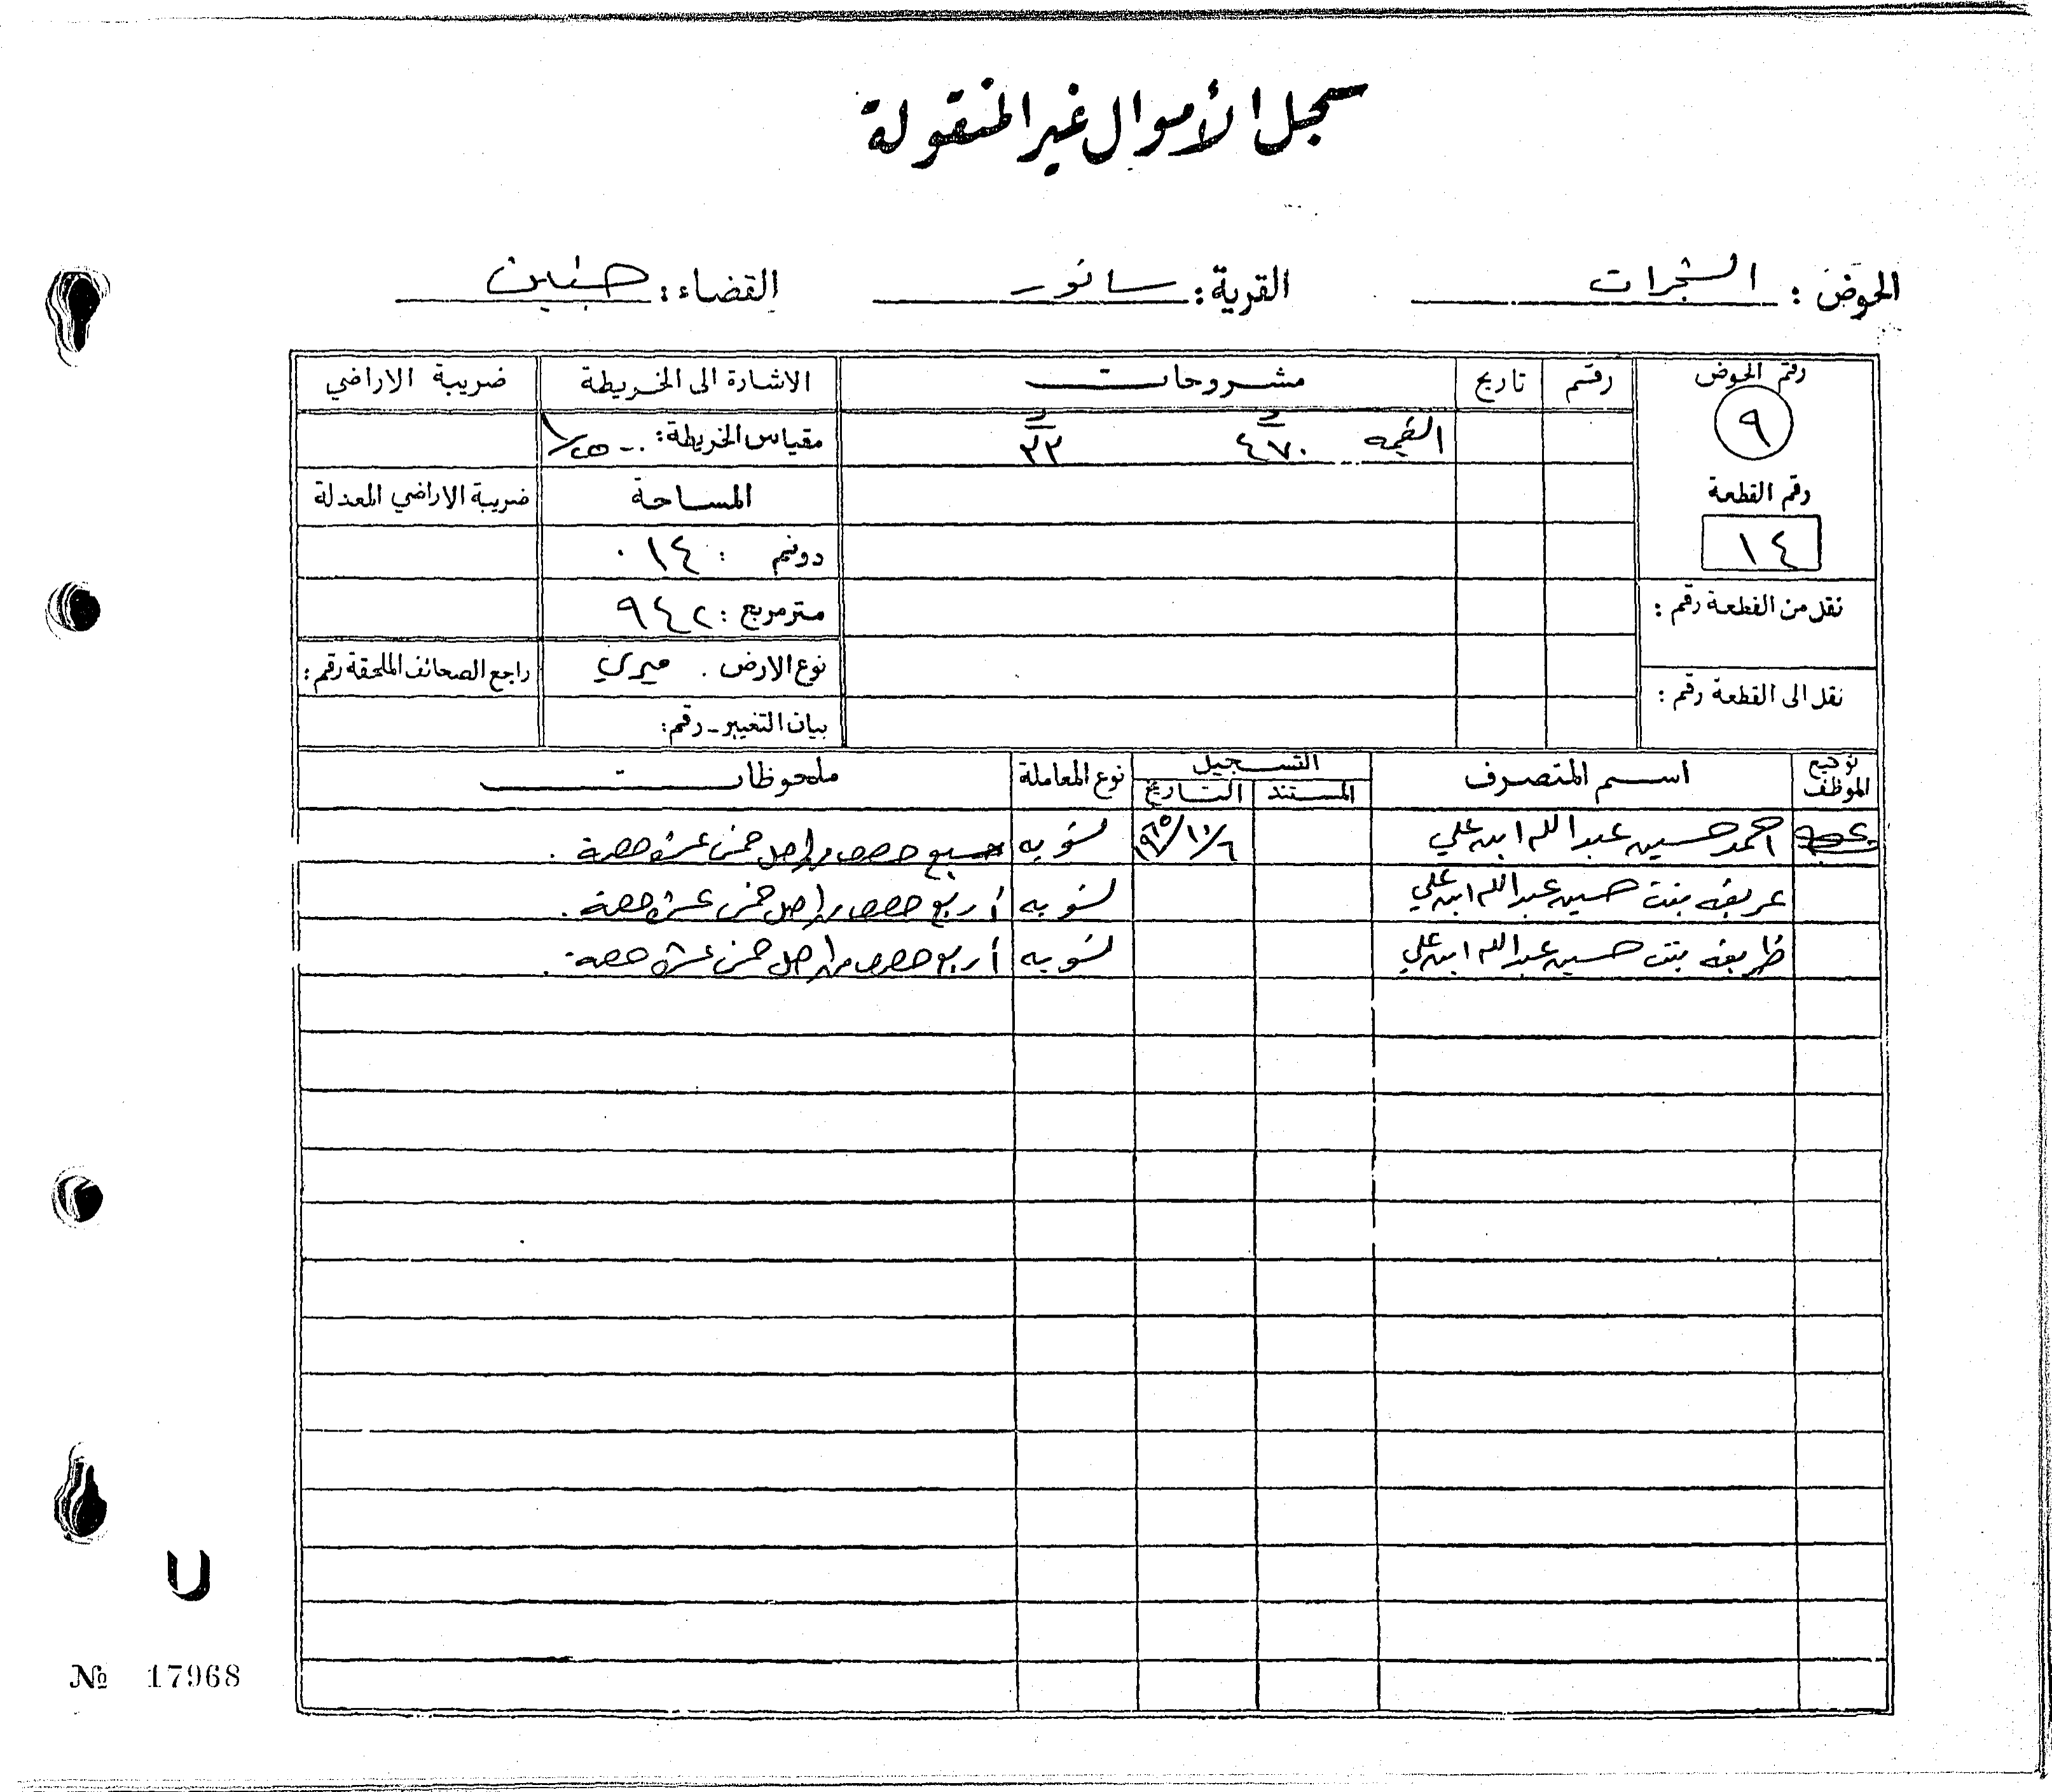 سجل الأموال غير المنقولة
الحوض : الشجرات القرية : سانور القضاء : جنين
رقم الحوض رقم تاريخ مشروحات الاشارة الى الخريطة ضريبة الاراضي
٩ القيمه ٤٧٠ د ٣٢ د مقياس الخريطة : ١/٢٥٠٠
رقم القطعة المساحة ضريبة الاراضي المعدلة
١٤ دونم : ٠١٤
نقل من القطعة رقم : مترمربع : ٩٤٢
نوع الارض . ميري راجع الصحائف الملحقة رقم :
نقل الى القطعة رقم : بيان التغيير - رقم :
توقيع الموظف اسم المتصرف التسجيل نوع المعاملة ملحوظات
المستند التاريخ
احمد حسين عبدالله ابن علي ١٩٦٥/١٠/٦ تسويه سبع حصص من اصل خمس عشرة حصة .
عريفه بنت حسين عبدالله ابن علي تسويه أربع حصص من اصل خمس عشرة حصة .
ظريفه بنت حسين عبدالله ابن علي تسويه أربع حصص من اصل خمس عشرة حصة .
U
№ 17968